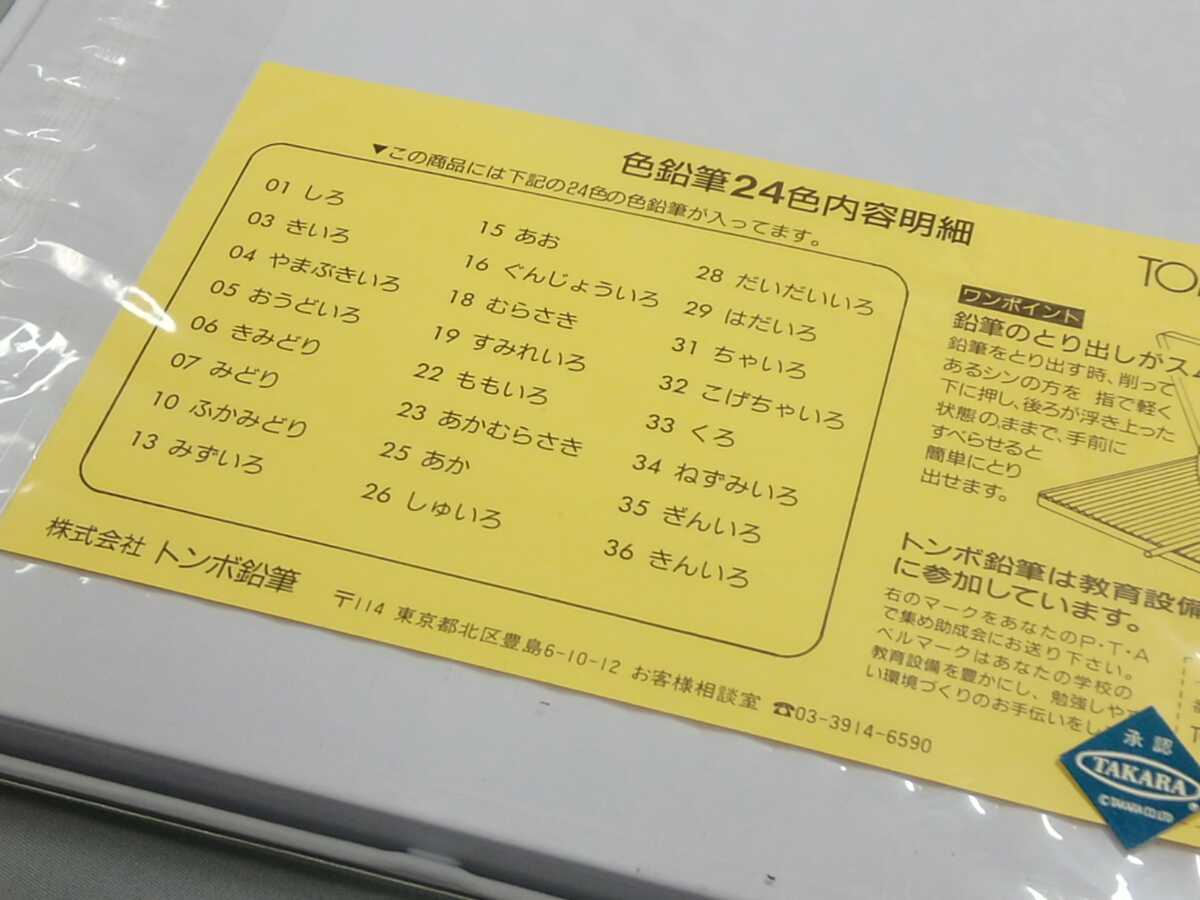 色鉛筆24色内容明細
▼この商品には下記の24色の色鉛筆が入ってます。
01 しろ
03 きいろ
04 やまぶきいろ
05 おうどいろ
06 きみどり
07 みどり
10 ふかみどり
13 みずいろ
15 あお
16 ぐんじょういろ
18 むらさき
19 すみれいろ
22 ももいろ
23 あかむらさき
25 あか
26 しゅいろ
28 だいだいいろ
29 はだいろ
31 ちゃいろ
32 こげちゃいろ
33 くろ
34 ねずみいろ
35 ぎんいろ
36 きんいろ
株式会社 トンボ鉛筆
〒114 東京都北区豊島6-10-12 お客様相談室 ☎03-3914-6590
TO
ワンポイント
鉛筆のとり出しがス
鉛筆をとり出す時、削って
あるシンの方を 指で軽く
下に押し、後ろが浮き上った
状態の、ままで、手前に
すべらせると
簡単にとり
出せます。
トンボ鉛筆は教育設備
に参加しています。
右のマークをあなたのP・T・A
で集め助成会にお送り下さい。
ベルマークはあなたの学校の
教育設備を豊かにし、勉強しやす
い環境づくりのお手伝いをし
承認
TAKARA
© TAKARA CO.LTD